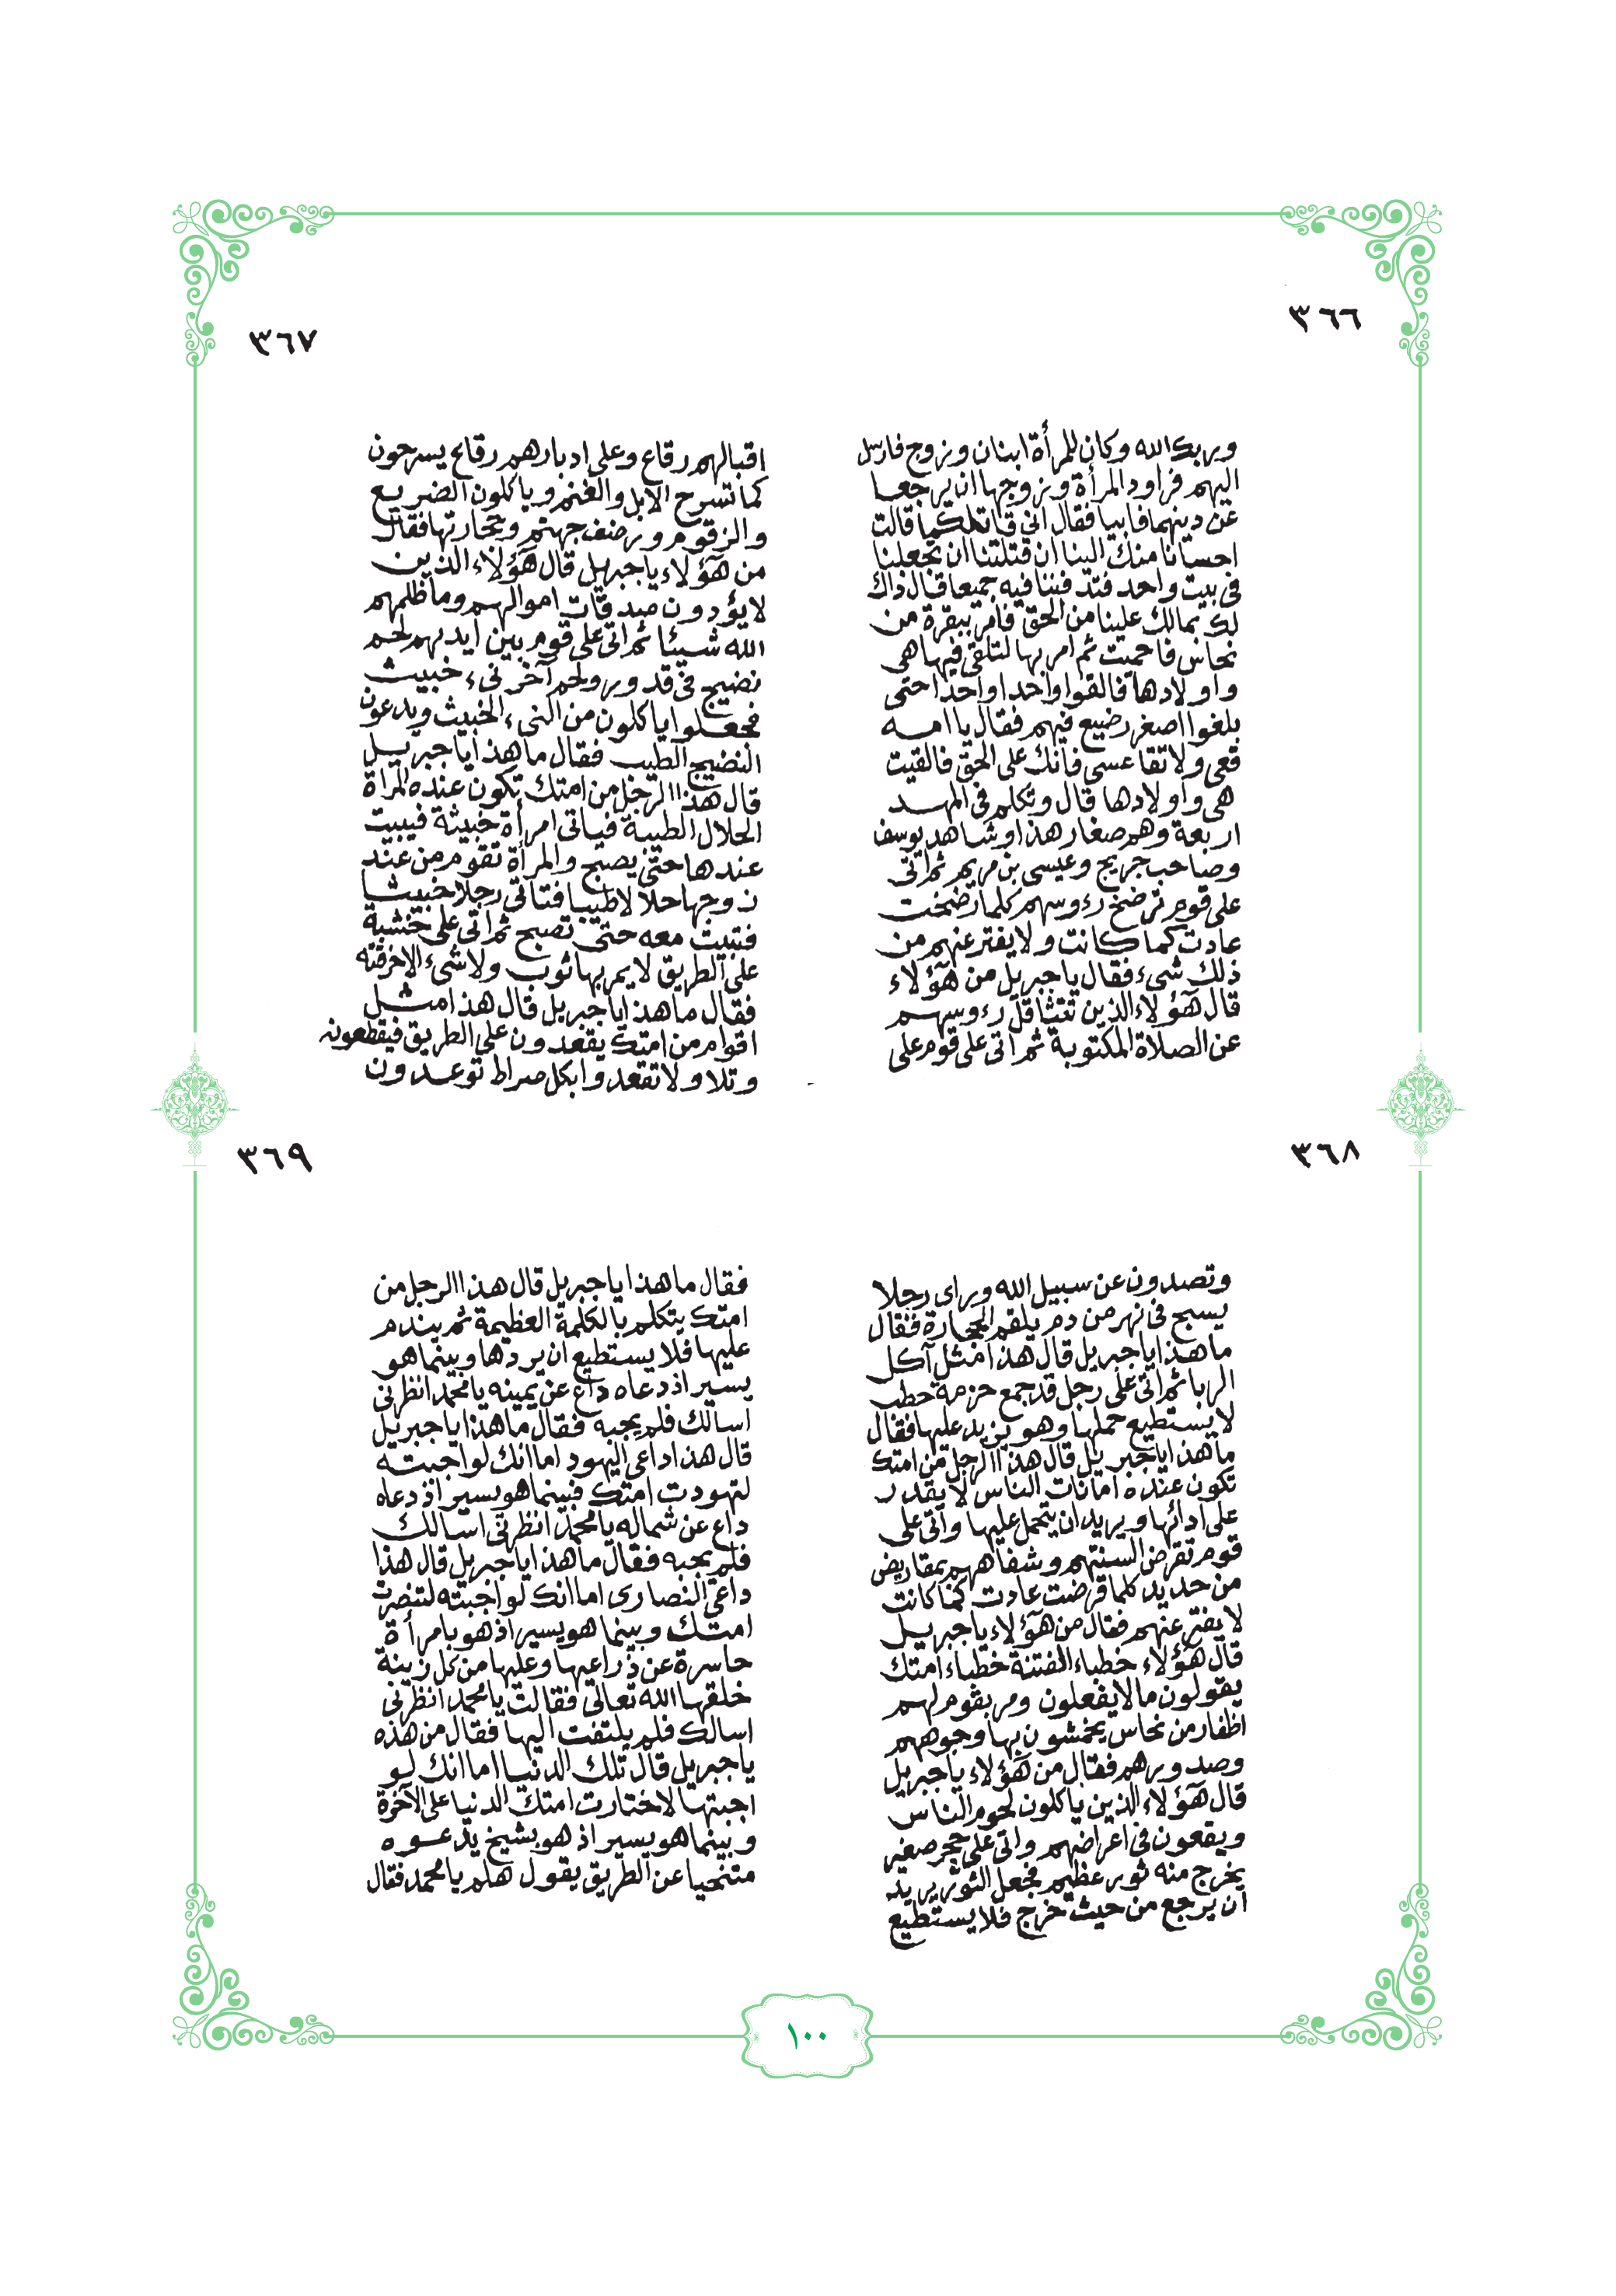 ٣٦٦
وربك الله وكان للمرأة ابنان وزوج فارسل
اليهم فراود المرأة وزوجها ان يرجعا
عن دينهما فابيا فقال اني قاتلكما قالت
احسانا منك الينا ان قتلتنا ان تجعلنا
في بيت واحد فتدفننا فيه جميعا قال ذاك
لك بمالك علينا من الحق فامر ببقرة من
نحاس فاحميت ثم امر بها لتلقى فيها هي
واولادها فالقوا واحدا واحدا حتى
بلغوا اصغر رضيع فيهم فقال يا امه
قعي ولا تقاعسي فانك على الحق فالقيت
هي واولادها قال وتكلم في المهد
اربعة وهم صغار هذا وشاهد يوسف
وصاحب جريج وعيسى بن مريم ثم اتى
على قوم ترضخ رءوسهم كلما رضخت
عادت كما كانت ولا يفتر عنهم من
ذلك شيء فقال يا جبريل من هؤلاء
قال هؤلاء الذين تتثاقل رءوسهم
عن الصلاة المكتوبة ثم اتى على قوم على
٣٦٧
اقبالهم رقاع وعلى ادبارهم رقاع يسرحون
كما تسرح الابل والغنم وياكلون الضريع
والزقوم ورضف جهنم وحجارتها فقال
من هؤلاء يا جبريل قال هؤلاء الذين
لا يؤدون صدقات اموالهم وما ظلمهم
الله شيئا ثم اتى على قوم بين ايديهم لحم
نضيج في قدور ولحم آخر نيء خبيث
فجعلوا ياكلون من النيء الخبيث ويدعون
النضيج الطيب فقال ما هذا يا جبريل
قال هذا الرجل من امتك تكون عنده المرأة
الحلال الطيبة فياتي امرأة خبيثة فيبيت
عندها حتى يصبح والمرأة تقوم من عند
زوجها حلالا طيبا فتاتي رجلا خبيثا
فتبيت معه حتى تصبح ثم اتى على خشبة
على الطريق لا يمر بها ثوب ولا شيء الا خرقته
فقال ما هذا يا جبريل قال هذا مثل
اقوام من امتك يقعدون على الطريق فيقطعونه
وتلا ولا تقعدوا بكل صراط توعدون
٣٦٨
وتصدون عن سبيل الله وراى رجلا
يسبح في نهر من دم يلقم الحجارة فقال
ما هذا يا جبريل قال هذا مثل آكل
الربا ثم اتى على رجل قد جمع حزمة حطب
لا يستطيع حملها وهو يزيد عليها فقال
ما هذا يا جبريل قال هذا الرجل من امتك
تكون عنده امانات الناس لا يقدر
على ادائها ويريد ان يتحمل عليها واتى على
قوم تقرض السنتهم وشفاههم بمقاريض
من حديد كلما قرضت عادت كما كانت
لا يفتر عنهم فقال من هؤلاء يا جبريل
قال هؤلاء خطباء الفتنة خطباء امتك
يقولون ما لا يفعلون ومر بقوم لهم
اظفار من نحاس يخمشون بها وجوههم
وصدورهم فقال من هؤلاء يا جبريل
قال هؤلاء الذين ياكلون لحوم الناس
ويقعون في اعراضهم واتى على حجر صغير
يخرج منه ثور عظيم فجعل الثور يريد
ان يرجع من حيث خرج فلا يستطيع
٣٦٩
فقال ما هذا يا جبريل قال هذا الرجل من
امتك يتكلم بالكلمة العظيمة ثم يندم
عليها فلا يستطيع ان يردها وبينما هو
يسير اذ دعاه داع عن يمينه يا محمد انظرني
اسالك فلم يجبه فقال ما هذا يا جبريل
قال هذا داعي اليهود اما انك لو اجبته
لتهودت امتك فبينما هو يسير اذ دعاه
داع عن شماله يا محمد انظرني اسالك
فلم يجبه فقال ما هذا يا جبريل قال هذا
داعي النصارى اما انك لو اجبته لتنصرت
امتك وبينما هو يسير اذ هو بامرأة
حاسرة عن ذراعيها وعليها من كل زينة
خلقها الله تعالى فقالت يا محمد انظرني
اسالك فلم يلتفت اليها فقال من هذه
يا جبريل قال تلك الدنيا اما انك لو
اجبتها لاختارت امتك الدنيا على الآخرة
وبينما هو يسير اذ هو بشيخ يدعوه
متنحيا عن الطريق يقول هلم يا محمد فقال
١٠٠